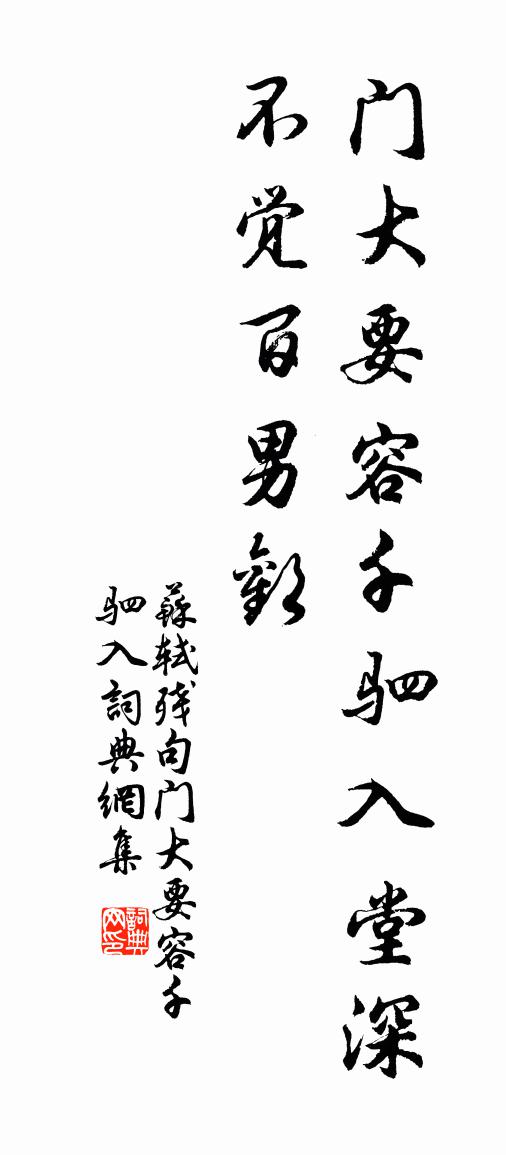 门大要容千驷入堂深
不觉百男欢
蘇轼残句门大要容千
驷入詞典網集
詞典网印